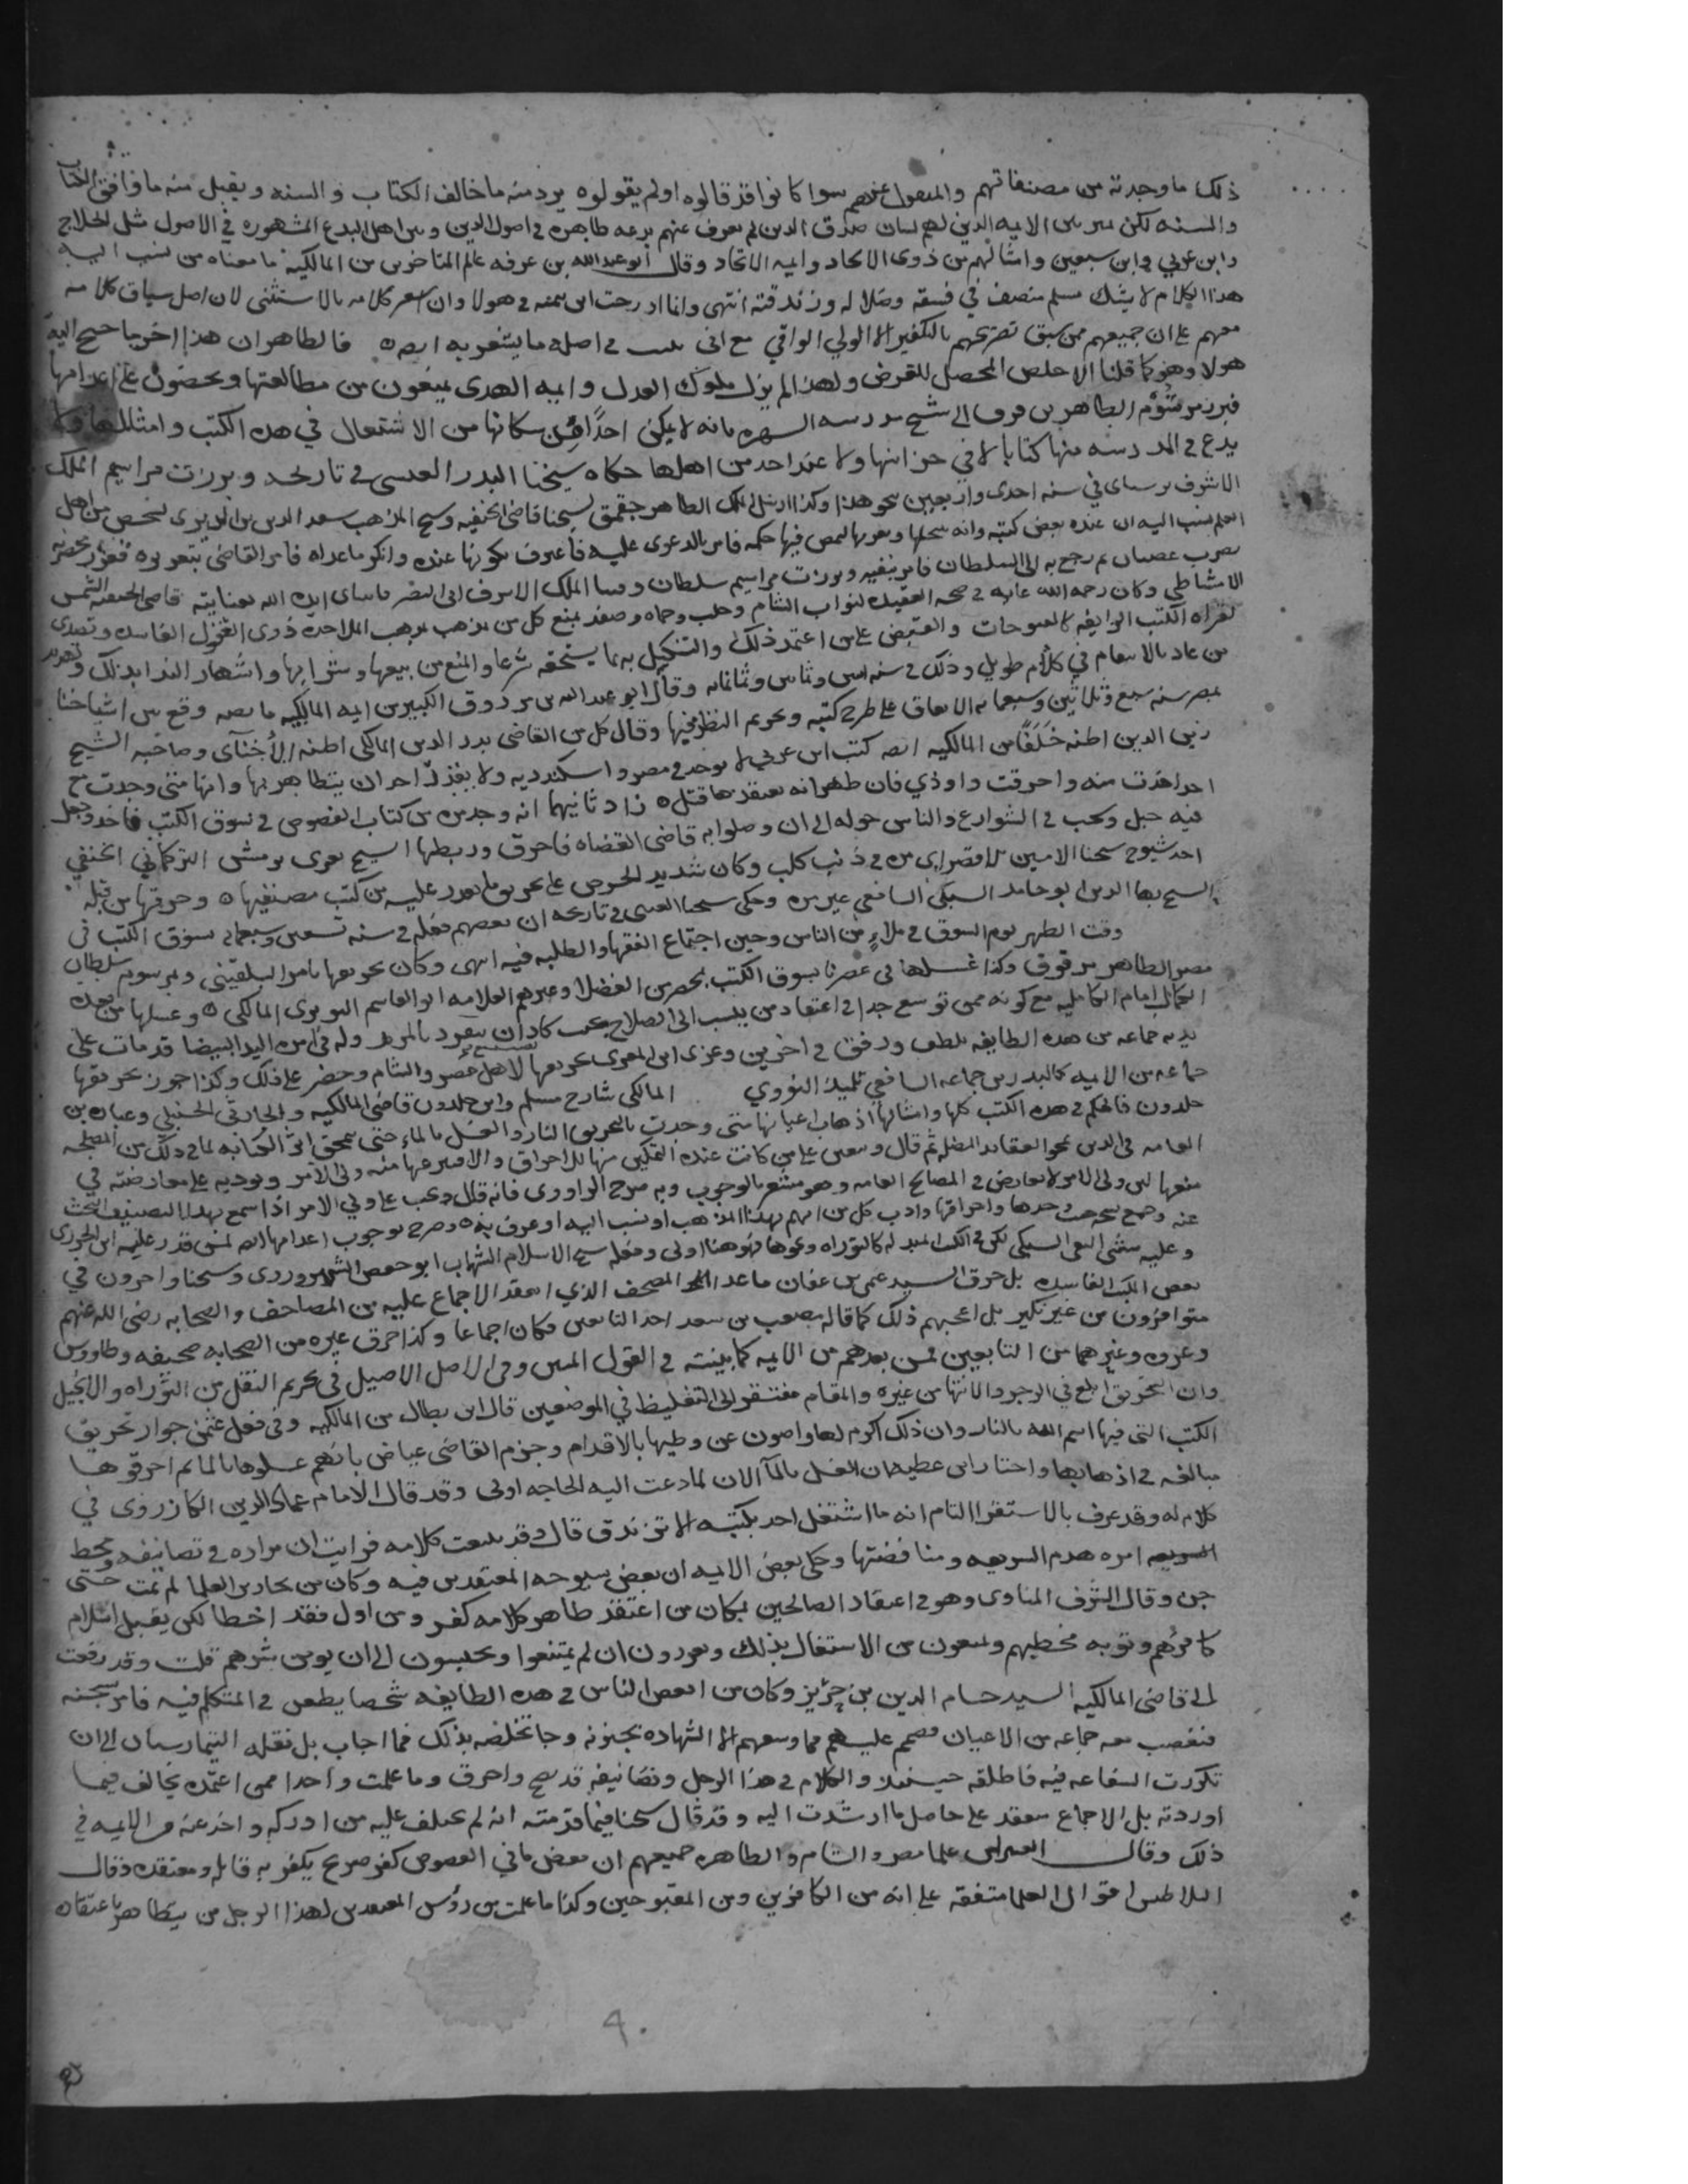 ذلك ما وجدته من مصنفاتهم والمنقول عنهم سوا كانوا قد قالوه او لم يقولوه يرد منه ما خالف الكتاب والسنه ويقبل منه ما وافق الكتاب
والسنه لكن بين الايمه الذين لهم لسان صدق الذين لم يعرف عنهم بدعه ظاهره في اصول الدين وبين اهل البدع المشهوره في الاصول مثل الحلاج
وابن عربي وابن سبعين وامثالهم من ذوي الالحاد وايمه الاتحاد وقال ابو عبد الله بن عرفه عالم المتاخرين من المالكيه ما معناه من نسب اليه
هذا الكلام لا يشك مسلم منصف في فسقه وضلاله وزندقته انتهى وانما ادرجت ابن في هولا وان اشعر كلامه بالاستثنى لان اصل سياق كلامه
معهم على ان جميعهم ممن سبق تصريحهم بالتكفير الا الولي الواقي مع اني في اصله ما يشعر به فالظاهر ان هذا اخر ما اليه
هولا وهو كما قلنا الاخلص المحصل للغرض ولهذا لم يزل ملوك العدل وايمه الهدى يمنعون من مطالعتها ويحضون على اعدامها
فبرز مرسوم الظاهر برقوق الى شيخ مدرسه بانه لا يمكن احدا من سكانها من الاشتغال في هذه الكتب وامثالها ولا
يدع في المدرسه منها كتابا لا في خزانتها ولا عند احد من اهلها حكاه شيخنا البدر العيني في تاريخه وبرزت مراسيم الملك
الاشرف برسباي في سنه احدى واربعين نحو هذا وكذا ارسل الملك الظاهر جقمق لشيخنا قاضي الحنفيه وشيخ المذهب سعد الدين بن الديري لشخص من اهل
العلم نسب اليه ان عنده بعض كتبه وانه فيها حكمه فامر بالدعوى عليه فاعترف بكونها عنده وانكر ما عداه فامر القاضي بتعزيره فعزر بحضرته
بضرب عصيات ثم رجع به الى السلطان فامر بنفيه وبرزت مراسيم سلطان وقتنا الملك الاشرف ابي النصر قايتباي ايده الله بعنايته قاضي الحنفيه الشمس
الامشاطي وكان رحمه الله غايه في صحه العقيده لنواب الشام وحلب وحماه وصفد بمنع كل من يذهب مذهب الملاحده ذوي العقول الفاسده وتصدى
لقراه الكتب الزايغه كالفتوحات والفصوص على من اعتمد ذلك والتنكيل به بما يستحقه شرعا والمنع من بيعها وشرايها واشهار الندا بذلك وتهديد
من عاد بالانتقام في كلام طويل وذلك في سنه وثمانين وثمانمايه وقال ابو عبد الله بن مرزوق الكبير من ايمه المالكيه ما نصه وقع من اشياخنا
بمصر سنه سبع وثلاثين وسبعمايه الاتفاق على طرح كتبه وتحريم النظر فيها وقال كل من القاضي بدر الدين المالكي اظنه الاخنائي وصاحبه الشيخ
زين الدين اظنه من المالكيه انه كتب ابن عربي لا توجد في مصر واسكندريه ولا يقدر احد ان يتظاهر بها وانها متى وجدت مع
احد اخذت منه واحرقت واوذي فان ظهر انه يعتقدها قتل زاد ثانيهما انه وجد مره من كتاب الفصوص في سوق الكتب فاخذ وجعل
فيه حبل وسحب في الشوارع والناس حوله الى ان وصلوا به قاضي القضاه فاحرق وربطها الشيخ دمشق التركماني الحنفي
احد شيوخ شيخنا الامين الاقصراي مره في ذنب كلب وكان شديد الحرص على تحريق ما يقدر عليه من كتب مصنفيها وحرقها من قبله
الشيخ بهاء الدين ابو حامد السبكي الشافعي غير مره وحكى شيخنا العيني في تاريخه ان بعضهم فعله في سنه تسعين وسبعمايه بسوق الكتب في
وقت الظهر يوم السوق في ملاء من الناس وحين اجتماع الفقها والطلبه فيه انتهى وكان تحريقها بامر البلقيني وبمرسوم سلطان
مصر الظاهر برقوق وكذا غسلها في عصرنا بسوق الكتب بمحضر من الفضلا وغيرهم العلامه ابو القاسم النويري المالكي وغسلها من بعده
الكمال امام الكامليه مع كونه ممن توسع جدا في اعتقاد من ينسب الى الصلاح بحيث كاد ان ينفرد بالمزيد وله في امره اليد البيضا قد مات على
يديه جماعه من هذه الطايفه بلطف ورفق في اخرين وعزي تحريقها لاهل مصر والشام وحضر على ذلك وكذا جوز تحريقها
جماعه من الايمه كالبدر بن جماعه الشافعي تلميذ النووي المالكي شارح مسلم وابن خلدون قاضي المالكيه والحارثي الحنبلي وعباره بن
خلدون فالحكم في هذه الكتب كلها وامثالها اذهاب اعيانها متى وجدت بالتحريق بالنار والغسل بالماء حتى ينمحق اثر الكتابه لما في ذلك من المصلحه
العامه في الدين بمحو العقايد المضله ثم قال ويتعين على من كانت عنده التمكين منها للاحراق والا فينزعها منه ولي الامر ويوديه على معارضته في
منعها لان ولي الامر لا يعارض في المصالح العامه وهو مشعر بالوجوب وبه صرح فانه قال ويجب على ولي الامر اذا سمع بهذا التصنيف البحث
عنه وجمع نسخه حيث وجدها واحراقها وادب كل من اتهم بهذا المذهب او نسب اليه او عرف به وصرح بوجوب اعدامها لمن قدر عليه ابن الجزري
وعليه مشى التقي السبكي لكن في الكتب المبدله كالتوراه ونحوها فهو هنا اولى وفعله شيخ الاسلام الشهاب ابو حفص السهروردي وشيخنا واخرون في
بعض الكتب الفاسده بل حرق السيد عثمن بن عفان ما عدا المصحف الذي انعقد الاجماع عليه من المصاحف والصحابه رضي الله عنهم
متوافرون من غير نكير بل اعجبهم ذلك كما قاله مصعب بن سعد احد التابعين فكان اجماعا وكذا حرق غيره من الصحابه صحيفه وطاووس
وعروه وغيرهما من التابعين فمن بعدهم من الايمه كما بينته في القول المبين وفي الاصل الاصيل في تحريم النقل من التوراه والانجيل
وان التحريق ابلغ في الوجود والانتها من غيره والمقام مفتقر الى التغليظ في الموضعين قال ابن بطال من المالكيه وفي فعل عثمن جواز تحريق
الكتب التي فيها اسم الله بالنار وان ذلك اكرم لها واصون عن وطيها بالاقدام وجزم القاضي عياض بانهم غسلوها بالما ثم احرقوها
مبالغه في اذهابها واختار ابن عطيه ان الغسل بالما الان لما دعت اليه الحاجه اولى وقد قال الامام عماد الدين الكازروني في
كلام له وقد عرف بالاستقرا التام انه ما اشتغل احد بكتبه الا تزندق قال وقد تتبعت كلامه فرايت ان مراده في تصانيفه ومحط
امره هدم الشريعه ومناقضتها وحكى بعض الايمه ان بعض شيوخه المعتقدين فيه وكان من العلما لم يمت حتى
جن وقال الشرف المناوي وهو في اعتقاد الصالحين بمكان من اعتقد ظاهر كلامه كفر ومن اول فقد اخطا لكن يقبل اسلام
كافرهم وتوبه مخطيهم ويمنعون من الاشتغال بذلك ويعزرون ان لم يمتنعوا ويحبسون الى ان يومن شرهم قلت وقد رفعت
الى قاضي المالكيه السيد حسام الدين بن حريز وكان من ابغض الناس في هذه الطايفه شخصا يطعن في المتكلم فيه فامر بسجنه
فتعصب معه جماعه من الاعيان فصمم عليهم فما وسعهم الا الشهاده بجنونه وجا تخلصه بذلك فما اجاب بل نقله البيمارستان الى ان
تكررت الشفاعه فيه فاطلقه حينئذ والكلام في هذا الرجل وتصانيفه قديم واحرق وما علمت واحدا ممن اعتمده يخالف فيما
اوردته بل الاجماع منعقد على حاصل ما ارشدت اليه وقد قال شيخنا فيما قدمته انه لم يختلف عليه من ادركه واخذ عنه من الايمه في
ذلك وقال علما مصر والشام والظاهره جميعهم ان بعض ما في الفصوص كفر صريح يكفر به قايله ومعتقده وقال
اقوال العلما متفقه على انه من الكافرين ومن المقبوحين وكذا ما علمت من رؤس المعتقدين لهذا الرجل من يتظاهر باعتقاده